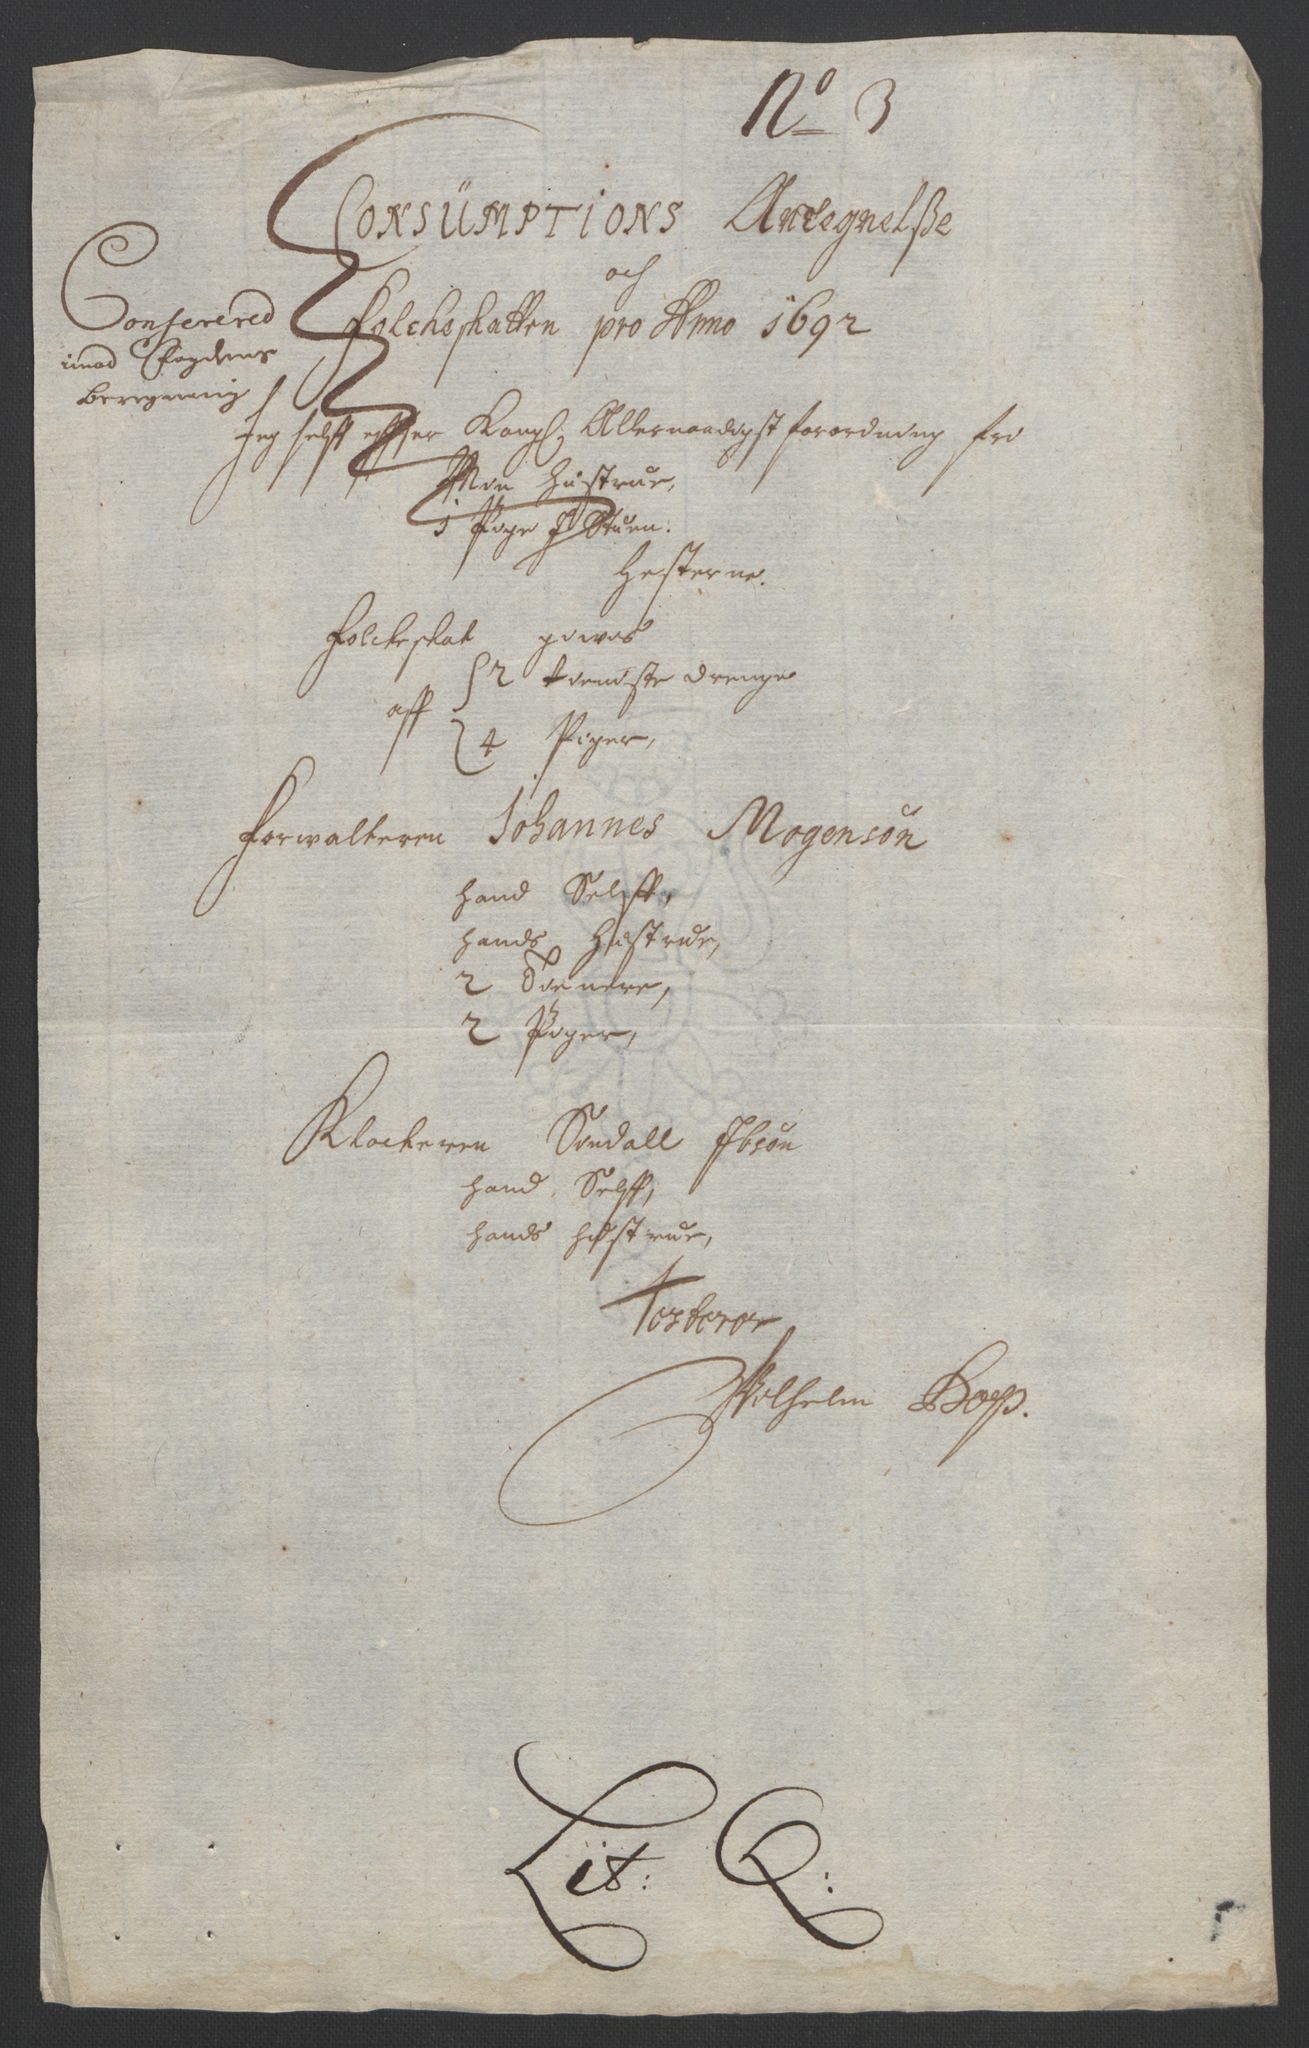 No 3
CONSÜMPTIONS Antegnelße
och
Folcheskatten pro Anno 1692
Conferered
imod Fogdens
Beregning
Jeg selff effter Kongl. Allernaadigst forordning fri
Min Hustrue,
1 Pige J Stuen.
Hesterne.
Folckeskat gives
aff { 2 tieniste drenge
{ 4 Piger,
Forwalteren Johannes Mogensøn
hand Selff,
hands Hustrue,
2 Tienere,
2 Piger,
Klockeren Sendall Ibsøn
hand Selff,
hands hustrue,
Testerer
Wilhelm
Lit: Q: